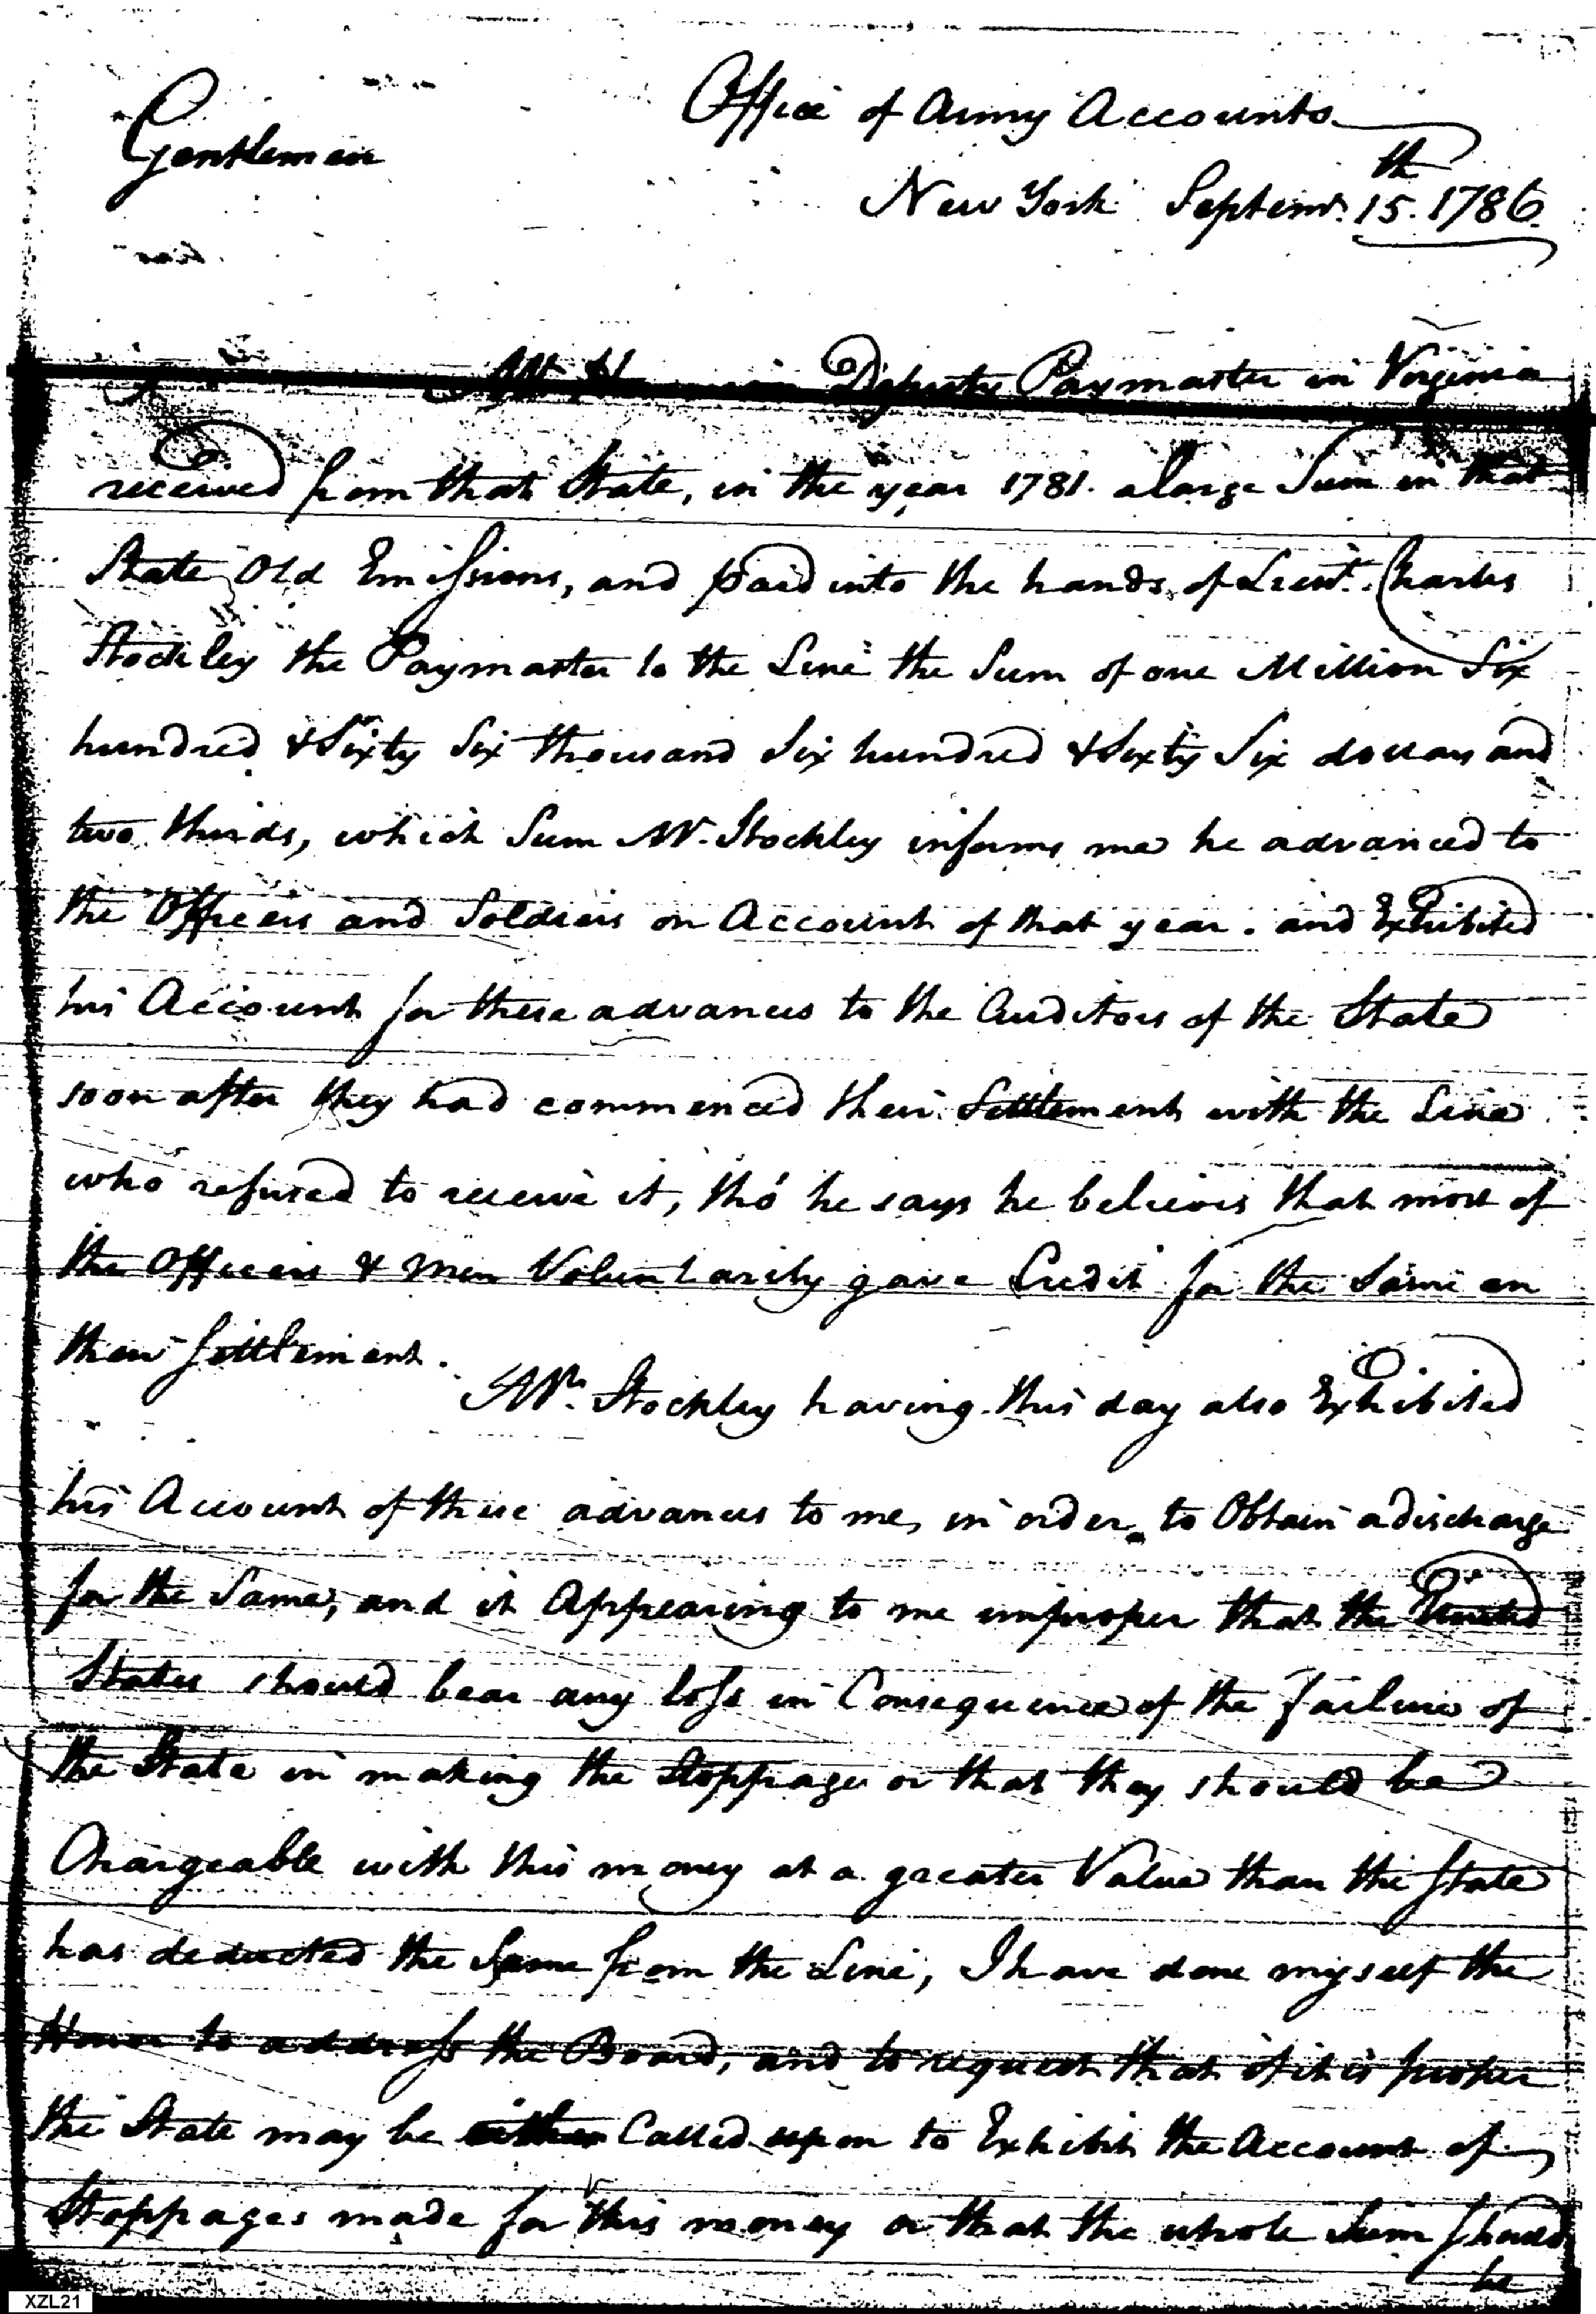 Office of Army Accounts
Gentlemen
New York Septemr. 15th. 1786.
Mr. Deputy Paymaster in Virginia
received from that State, in the year 1781. a large Sum in that
State Old Emissions, and paid into the hands of Lieut. Charles
Stockley the Paymaster to the Line the Sum of one Million Six
hundred & Sixty Six thousand Six hundred & Sixty Six dollars and
two thirds, which Sum Mr. Stockley informs me he advanced to
the Officers and Soldiers on Account of that year. and Exhibited
his Account for these advances to the Auditors of the State
soon after they had commenced their Settlement with the Line
who refused to receive it, tho' he says he believes that most of
the Officers & Men Voluntarily gave Credit for the Same on
their Settlement.
Mr. Stockley having this day also Exhibited
his Account of these advances to me, in order to Obtain a discharge
for the Same, and it Appearing to me improper that the United
States should bear any loss in Consequence of the failure of
the State in making the Stoppages or that they should be
Chargeable with this money at a greater Value than the State
has deducted the Same from the Line, I have done myself the
Honor to address the Board, and to request that if it is proper
the State may be either Called upon to Exhibit the Account of
Stoppages made for this money or that the whole Sum should
be
XZL21